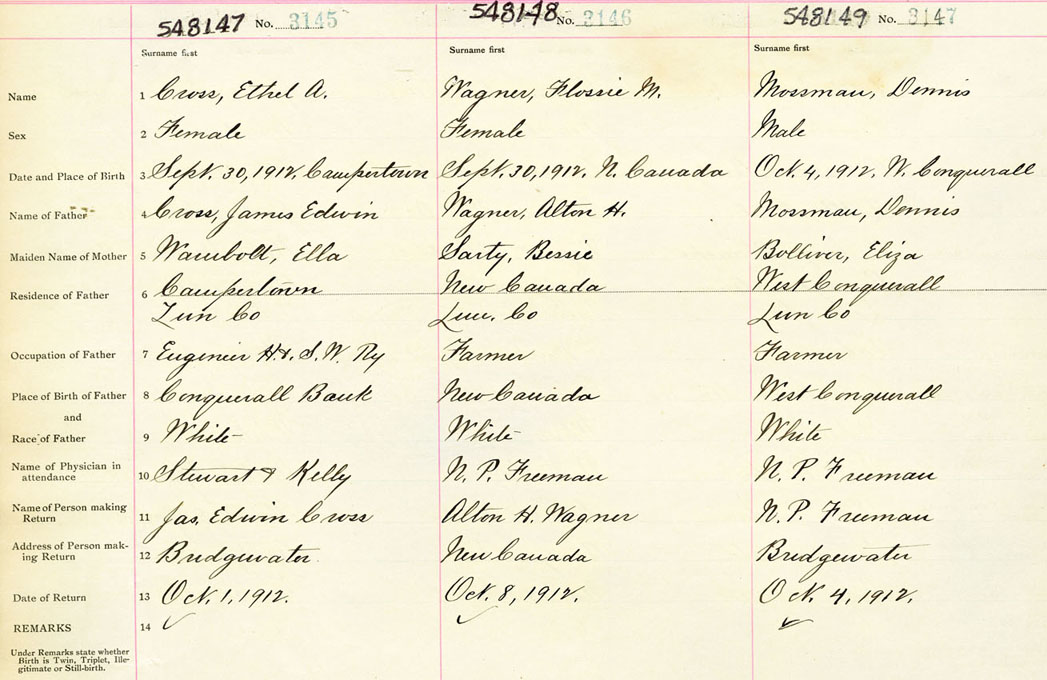 548147 No. 3145 548148 No. 3146 548149 No. 3147
Surname first Surname first Surname first
Name 1 Cross, Ethel A. Wagner, Flossie M. Mossman, Dennis
Sex 2 Female Female Male
Date and Place of Birth 3 Sept. 30, 1912. Campertown Sept. 30, 1912. N. Canada Oct. 4, 1912. W. Conquerall
Name of Father 4 Cross, James Edwin Wagner, Alton H. Mossman, Dennis
Maiden Name of Mother 5 Wambolt, Ella Sarty, Bessie Bolliver, Eliza
Residence of Father 6 Campertown New Canada West Conquerall
Lun Co Lun. Co Lun Co
Occupation of Father 7 Enginier H. & S. W. Ry Farmer Farmer
Place of Birth of Father 8 Conquerall Bank New Canada West Conquerall
and
Race of Father 9 White White White
Name of Physician in
attendance 10 Stewart & Kelly N. P. Freeman N. P. Freeman
Name of Person making
Return 11 Jas. Edwin Cross Alton H. Wagner N. P. Freeman
Address of Person mak-
ing Return 12 Bridgewater New Canada Bridgewater
Date of Return 13 Oct. 1, 1912. Oct. 8, 1912. Oct. 4, 1912.
REMARKS 14 ✓ ✓ ✓
Under Remarks state whether
Birth is Twin, Triplet, Ille-
gitimate or Still-birth.